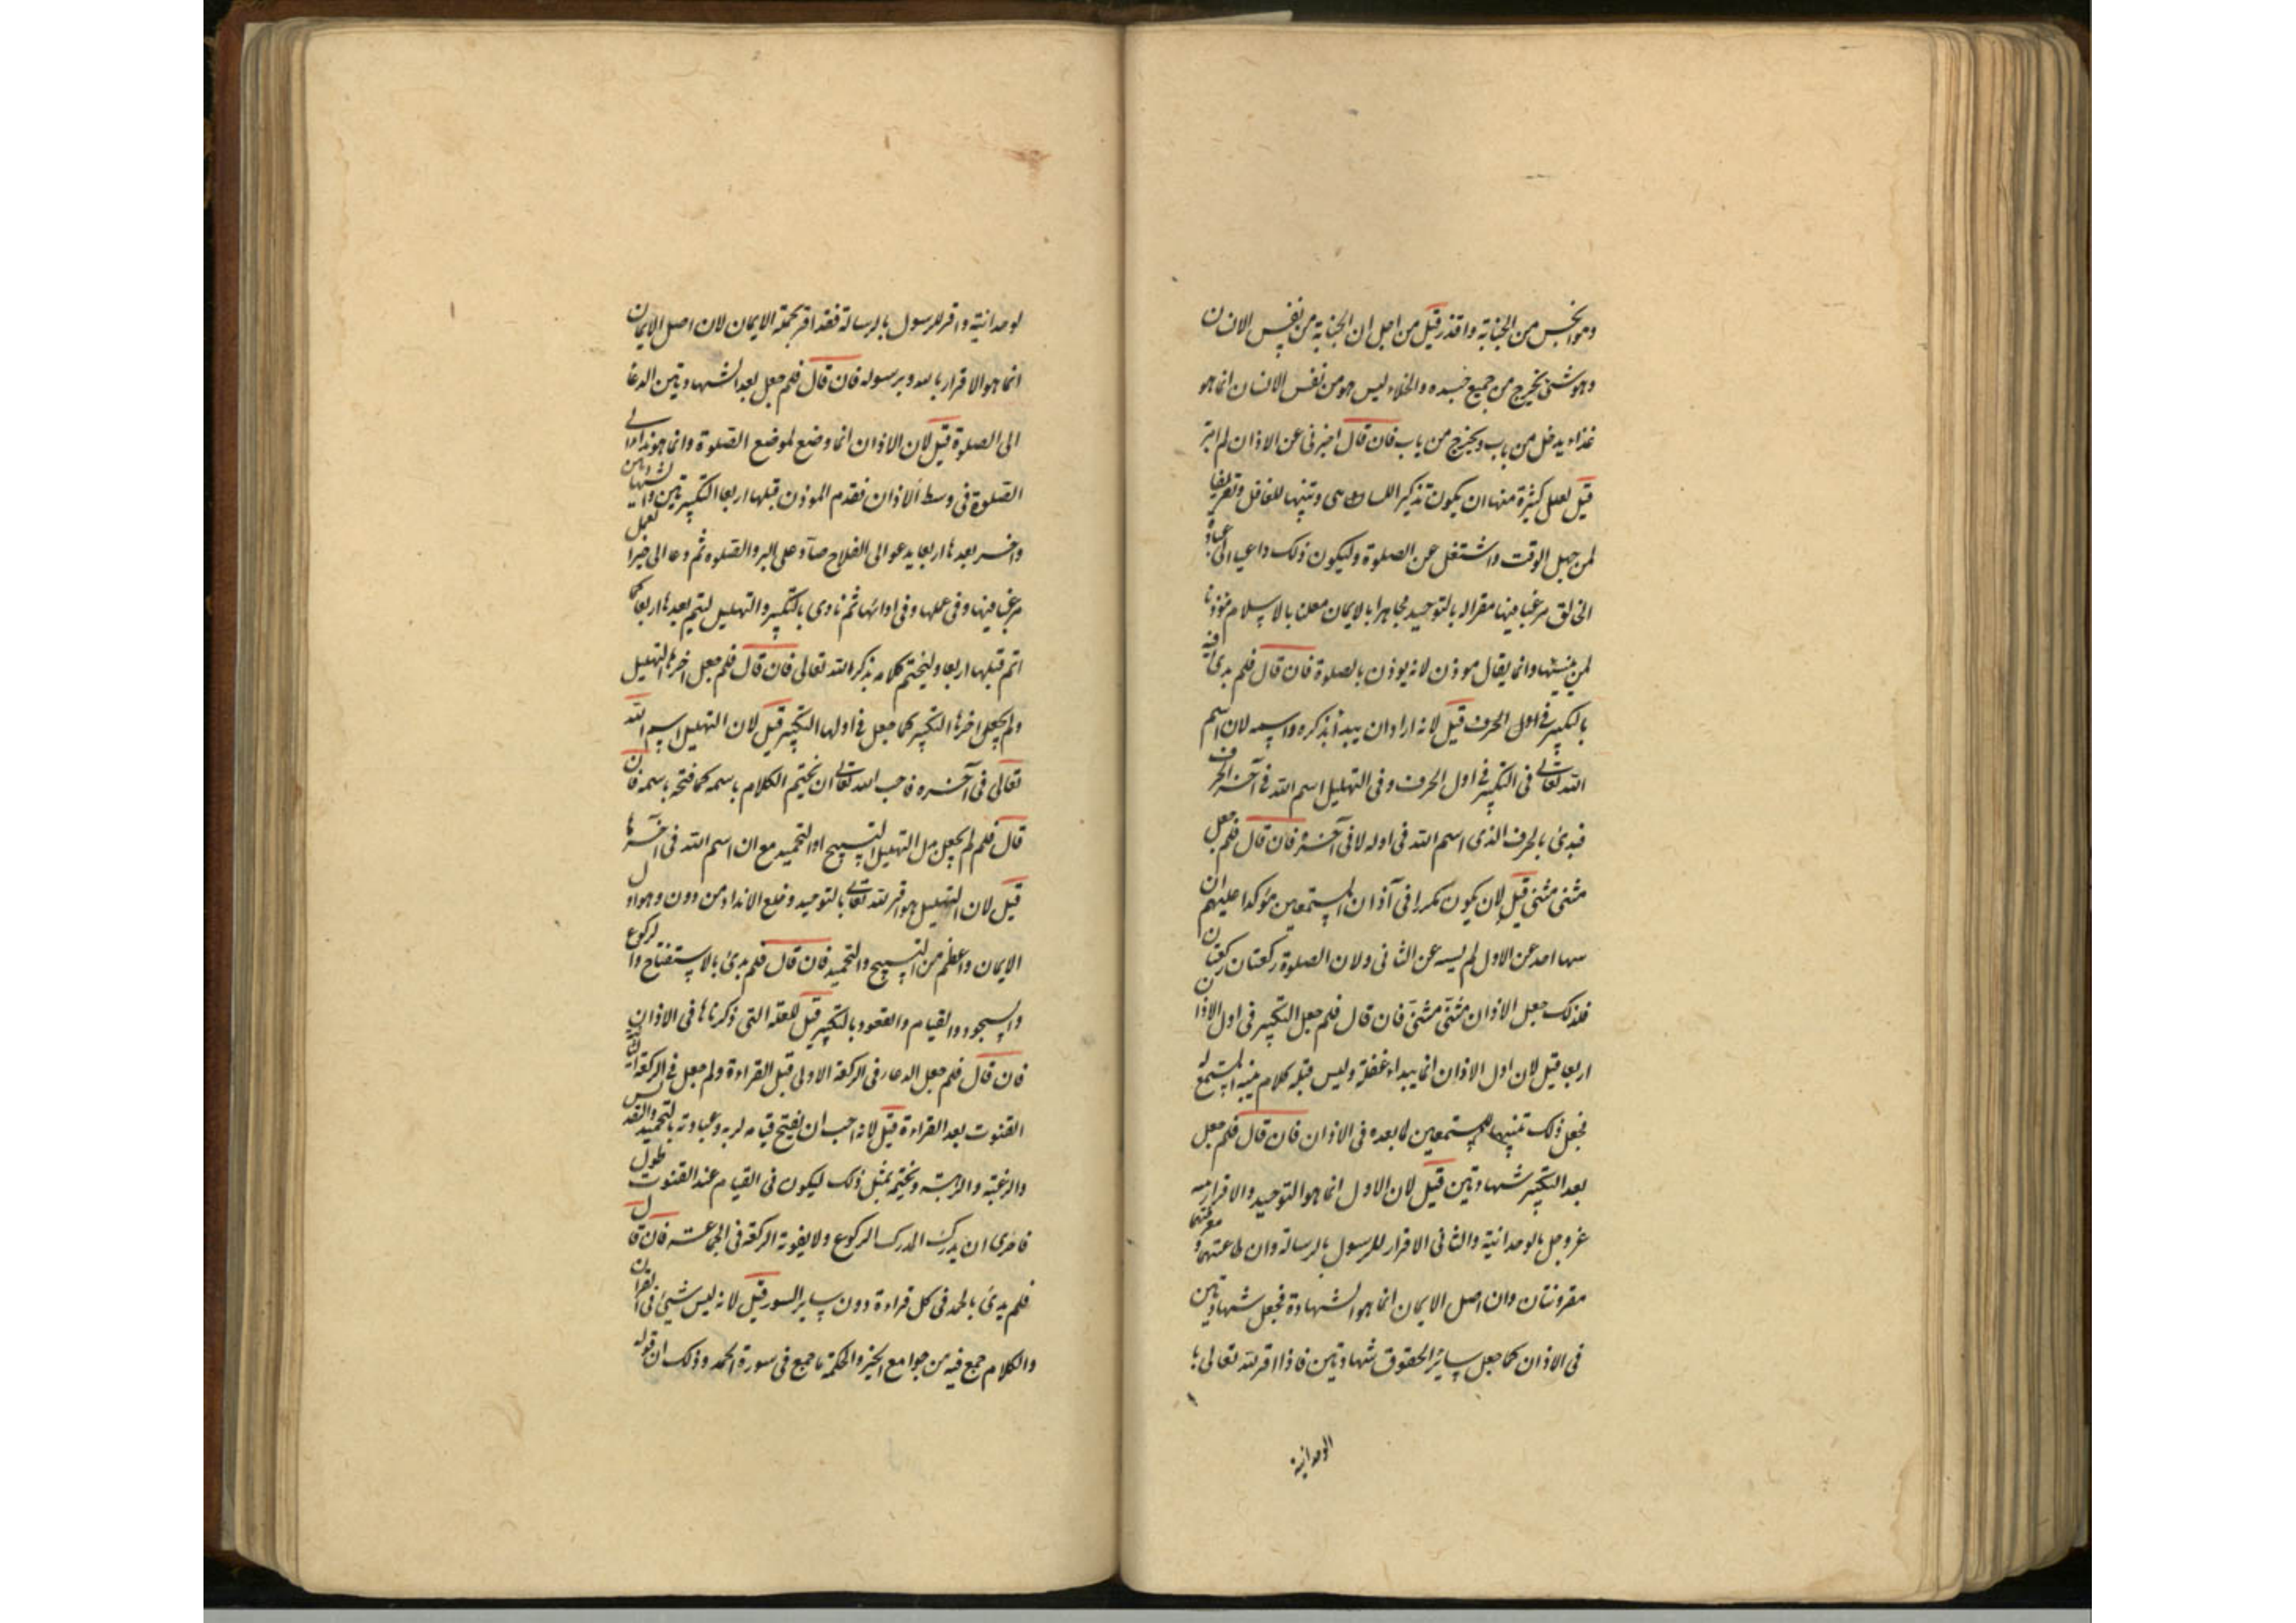 وهو انجس من الجنابة واقذر قيل من اجل ان الجنابة من نفس الانسان
وهو شئ يخرج من جميع جسده والخلاء ليس هو من نفس الانسان انما هو
غذاء يدخل من باب ويخرج من باب فان قال اخبرنى عن الاذان لم امر
قيل لعلل كثيرة منها ان يكون تذكيرا للساهى وتنبيها للغافل وتعريفا
لمن جهل الوقت واشتغل عن الصلوة وليكون ذلك داعيا الى عبادة
الخالق مرغبا فيها مقرا له بالتوحيد مجاهرا بالايمان معلنا بالاسلام مؤذنا
لمن ينسيها وانما يقال مؤذن لانه يوذن بالصلوة فان قال فلم بدئ فيه
بالتكبير فى اول الحرف قيل لانه اراد ان يبدأ بذكره واسمه لان اسم
الله تعالى فى التكبير فى اول الحرف وفى التهليل اسم الله فى آخر الحرف
فبدئ بالحرف الذى اسم الله فى اوله لا فى آخره فان قال فلم جعل
مثنى مثنى قيل لان يكون مكررا فى آذان المستمعين مؤكدا عليهم ان
سها احد عن الاول لم يسه عن الثانى ولان الصلوة ركعتان ركعتان
فلذلك جعل الاذان مثنى مثنى فان قال فلم جعل التكبير فى اول الاذان
اربعا قيل لان اول الاذان انما يبداء غفلة وليس قبله كلام ينبه المستمع له
فجعل ذلك تنبيها للمستمعين لما بعده فى الاذان فان قال فلم جعل
بعد التكبير شهادتين قيل لان الاول انما هو التوحيد والاقرار لله
عز وجل بالوحدانية والثانى الاقرار للرسول بالرسالة وان طاعتهما ومعرفتهما
مقرونتان وان اصل الايمان انما هو الشهادة فجعل شهادتين
فى الاذان كما جعل سائر الحقوق شهادتين فاذا اقر لله تعالى با
الوحدانية
لوحدانية واقر للرسول بالرسالة فقد اقر بجملة الايمان لان اصل الايمان
انما هو الاقرار بالله وبرسوله فان قال فلم جعل بعد الشهادتين الدعا
الى الصلوة قيل لان الاذان انما وضع لموضع الصلوة وانما هو نداء الى
الصلوة فى وسط الاذان فقدم الموذن قبلها اربعا التكبيرتين والشهادتين
واخر بعدها اربعا يدعو الى الفلاح حثا على البر والصلوه ثم دعا الى خير العمل
مرغبا فيها وفى عملها وفى ادائها ثم نادى بالتكبير والتهليل ليتم بعدها اربعا كما
اتم قبلها اربعا وليختم كلامه بذكر الله تعالى فان قال فلم جعل اخرها التهليل
ولم يجعل اخرها التكبير كما جعل فى اولها التكبير قيل لان التهليل اسم الله
تعالى فى آخره فاحب الله تعالى ان يختم الكلام باسمه كما فتحه باسمه فان
قال فلم لم يجعل بدل التهليل التسبيح او التحميد مع ان اسم الله فى آخرها
قيل لان التهليل هو اقرار لله تعالى بالتوحيد وخلع الانداد من دون وهو اول
الايمان واعظم من التسبيح والتحميد فان قال فلم بدئ بالاستفتاح والركوع
والسجود والقيام والقعود بالتكبير قيل للعلة التى ذكرناها فى الاذان
فان قال فلم جعل الدعاء فى الركعة الاولى قبل القراءة ولم جعل فى الركعة الثانية
القنوت بعد القراءة قيل لانه احب ان يفتح قيامه لربه وعبادته بالتحميد والتقديس
والرغبة والرهبة ويختم بمثل ذلك ليكون فى القيام عند القنوت طول
فاحرى ان يدرك المدرك الركوع ولا يفوته الركعة فى الجماعة فان قال
فلم بدئ بالحمد فى كل قراءة دون سائر السور قيل لانه ليس شيئ فى القران
والكلام جمع فيه من جوامع الخير والحكمة ما جمع فى سورة الحمد وذلك ان قوله